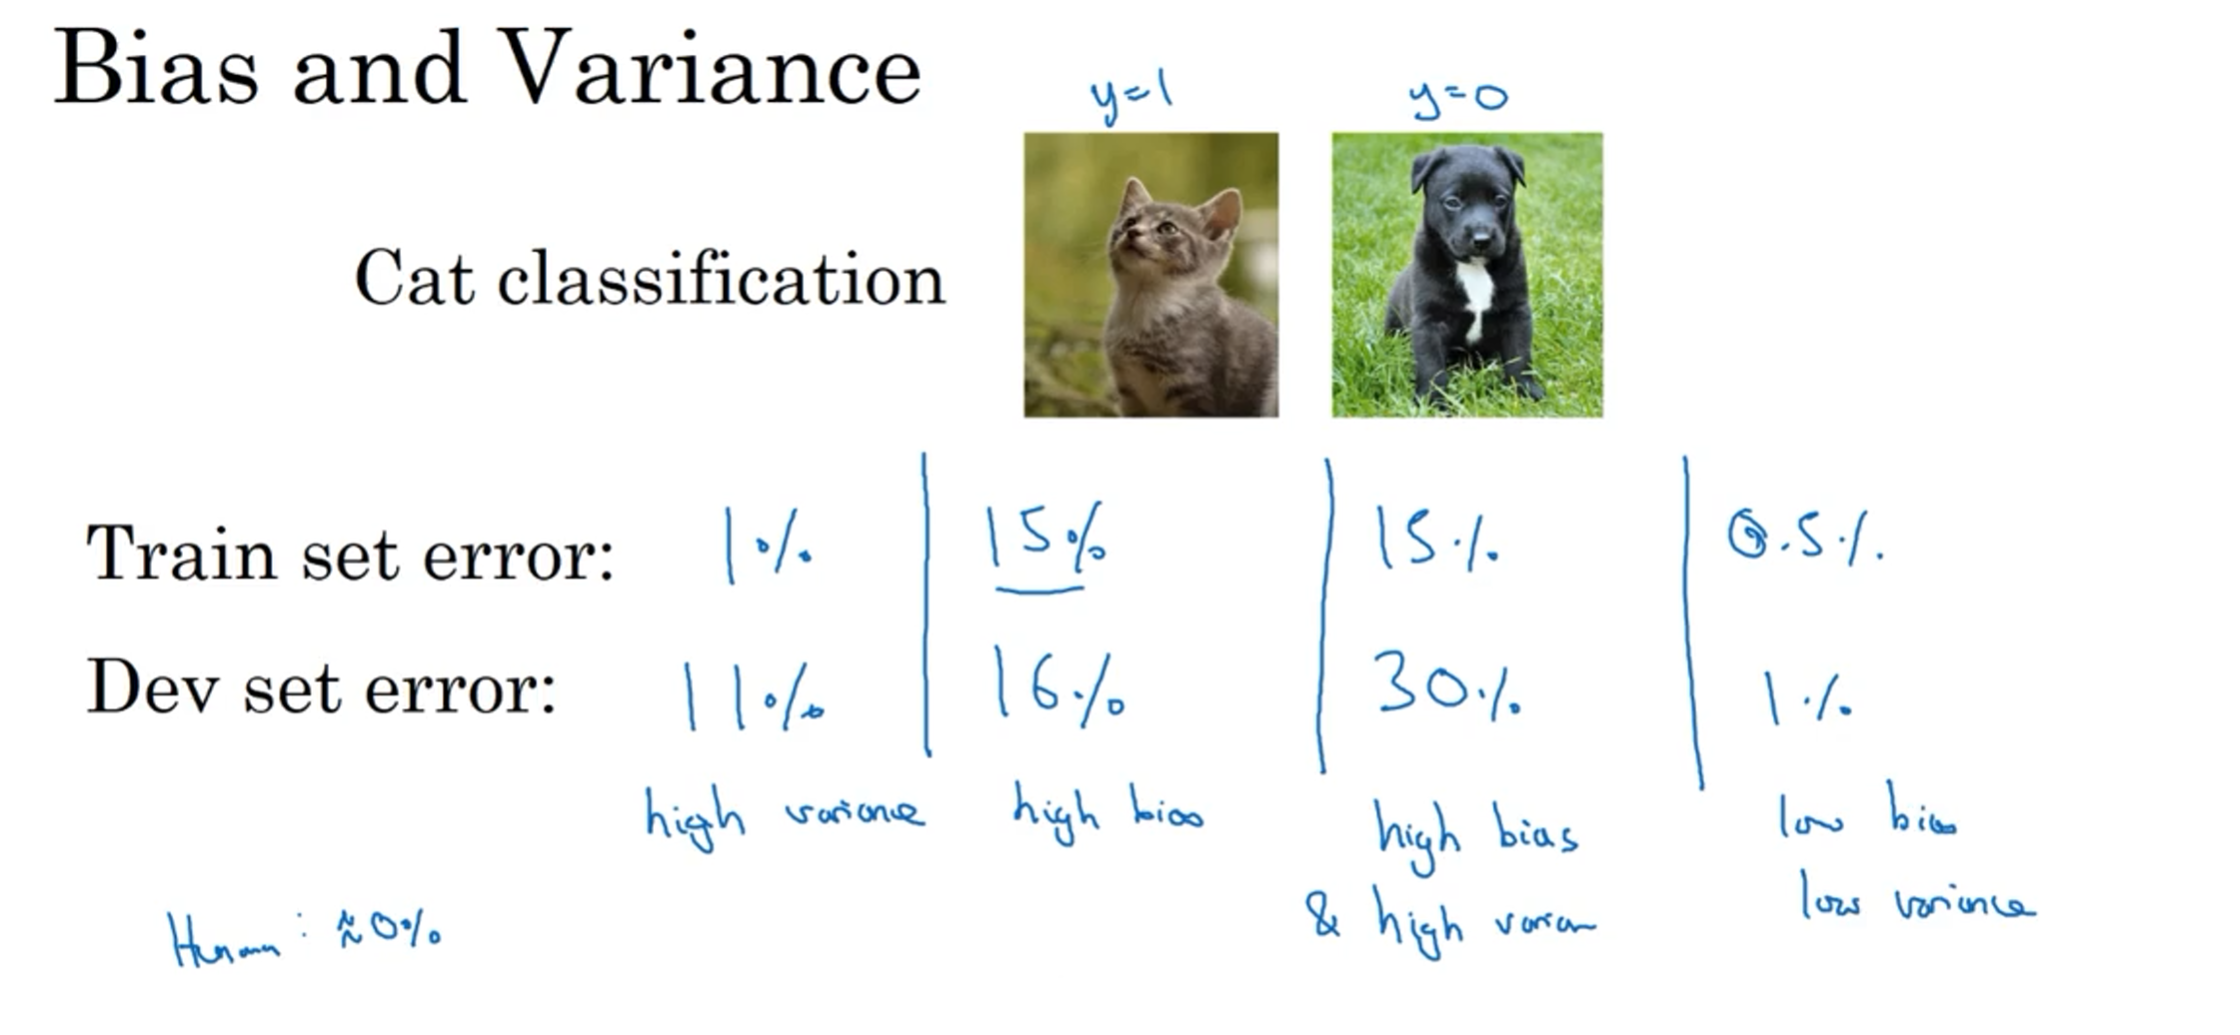 Bias and Variance
y=1 y=0
Cat classification
Train set error: 1% 15% 15% 0.5%
Dev set error: 11% 16% 30% 1%
high variance high bias high bias low bias
& high varian low variance
Human: ≈0%